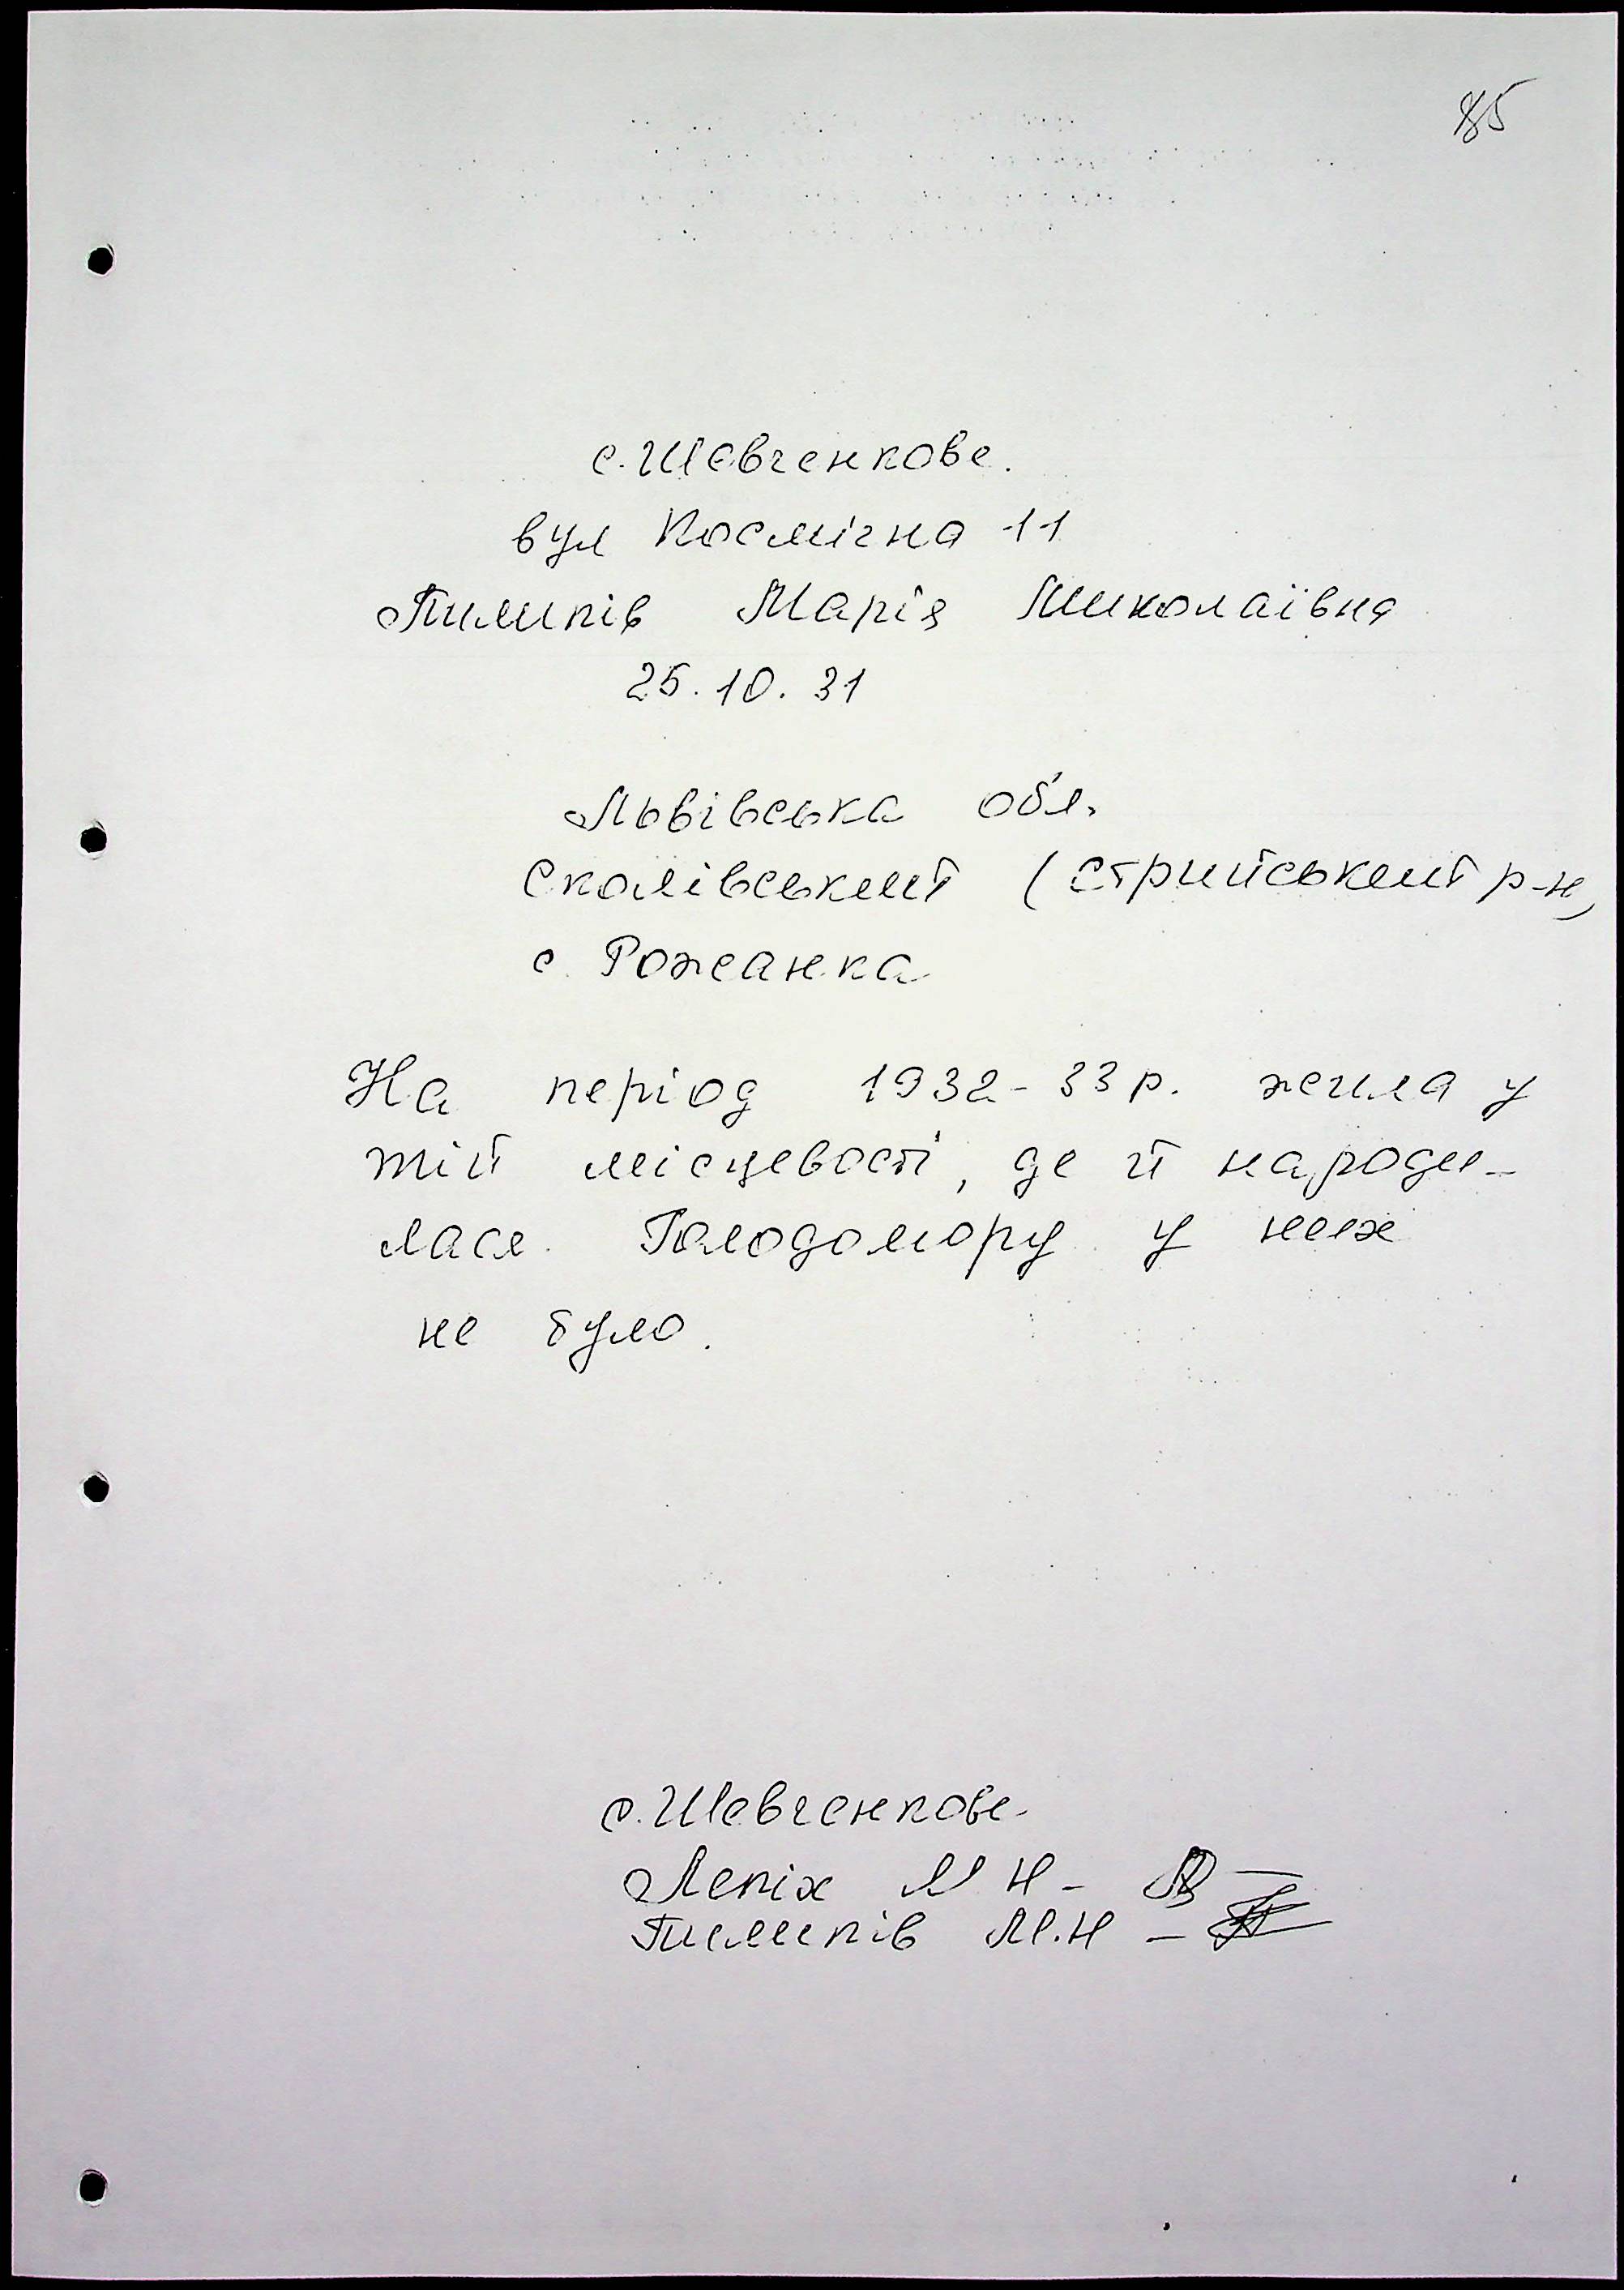 85
с. Шевченкове.
вул Космічна 11
Пилипів Марія Миколаївна
25.10.31
Львівська обл.
Сколівський (Стрийський р-н)
с. Рожанка
На період 1932-33 р. жила у
тій місцевості, де й народи-
лася. Голодомору у них
не було.
с. Шевченкове.
Лепіх М Н -
Пилипів М.Н -